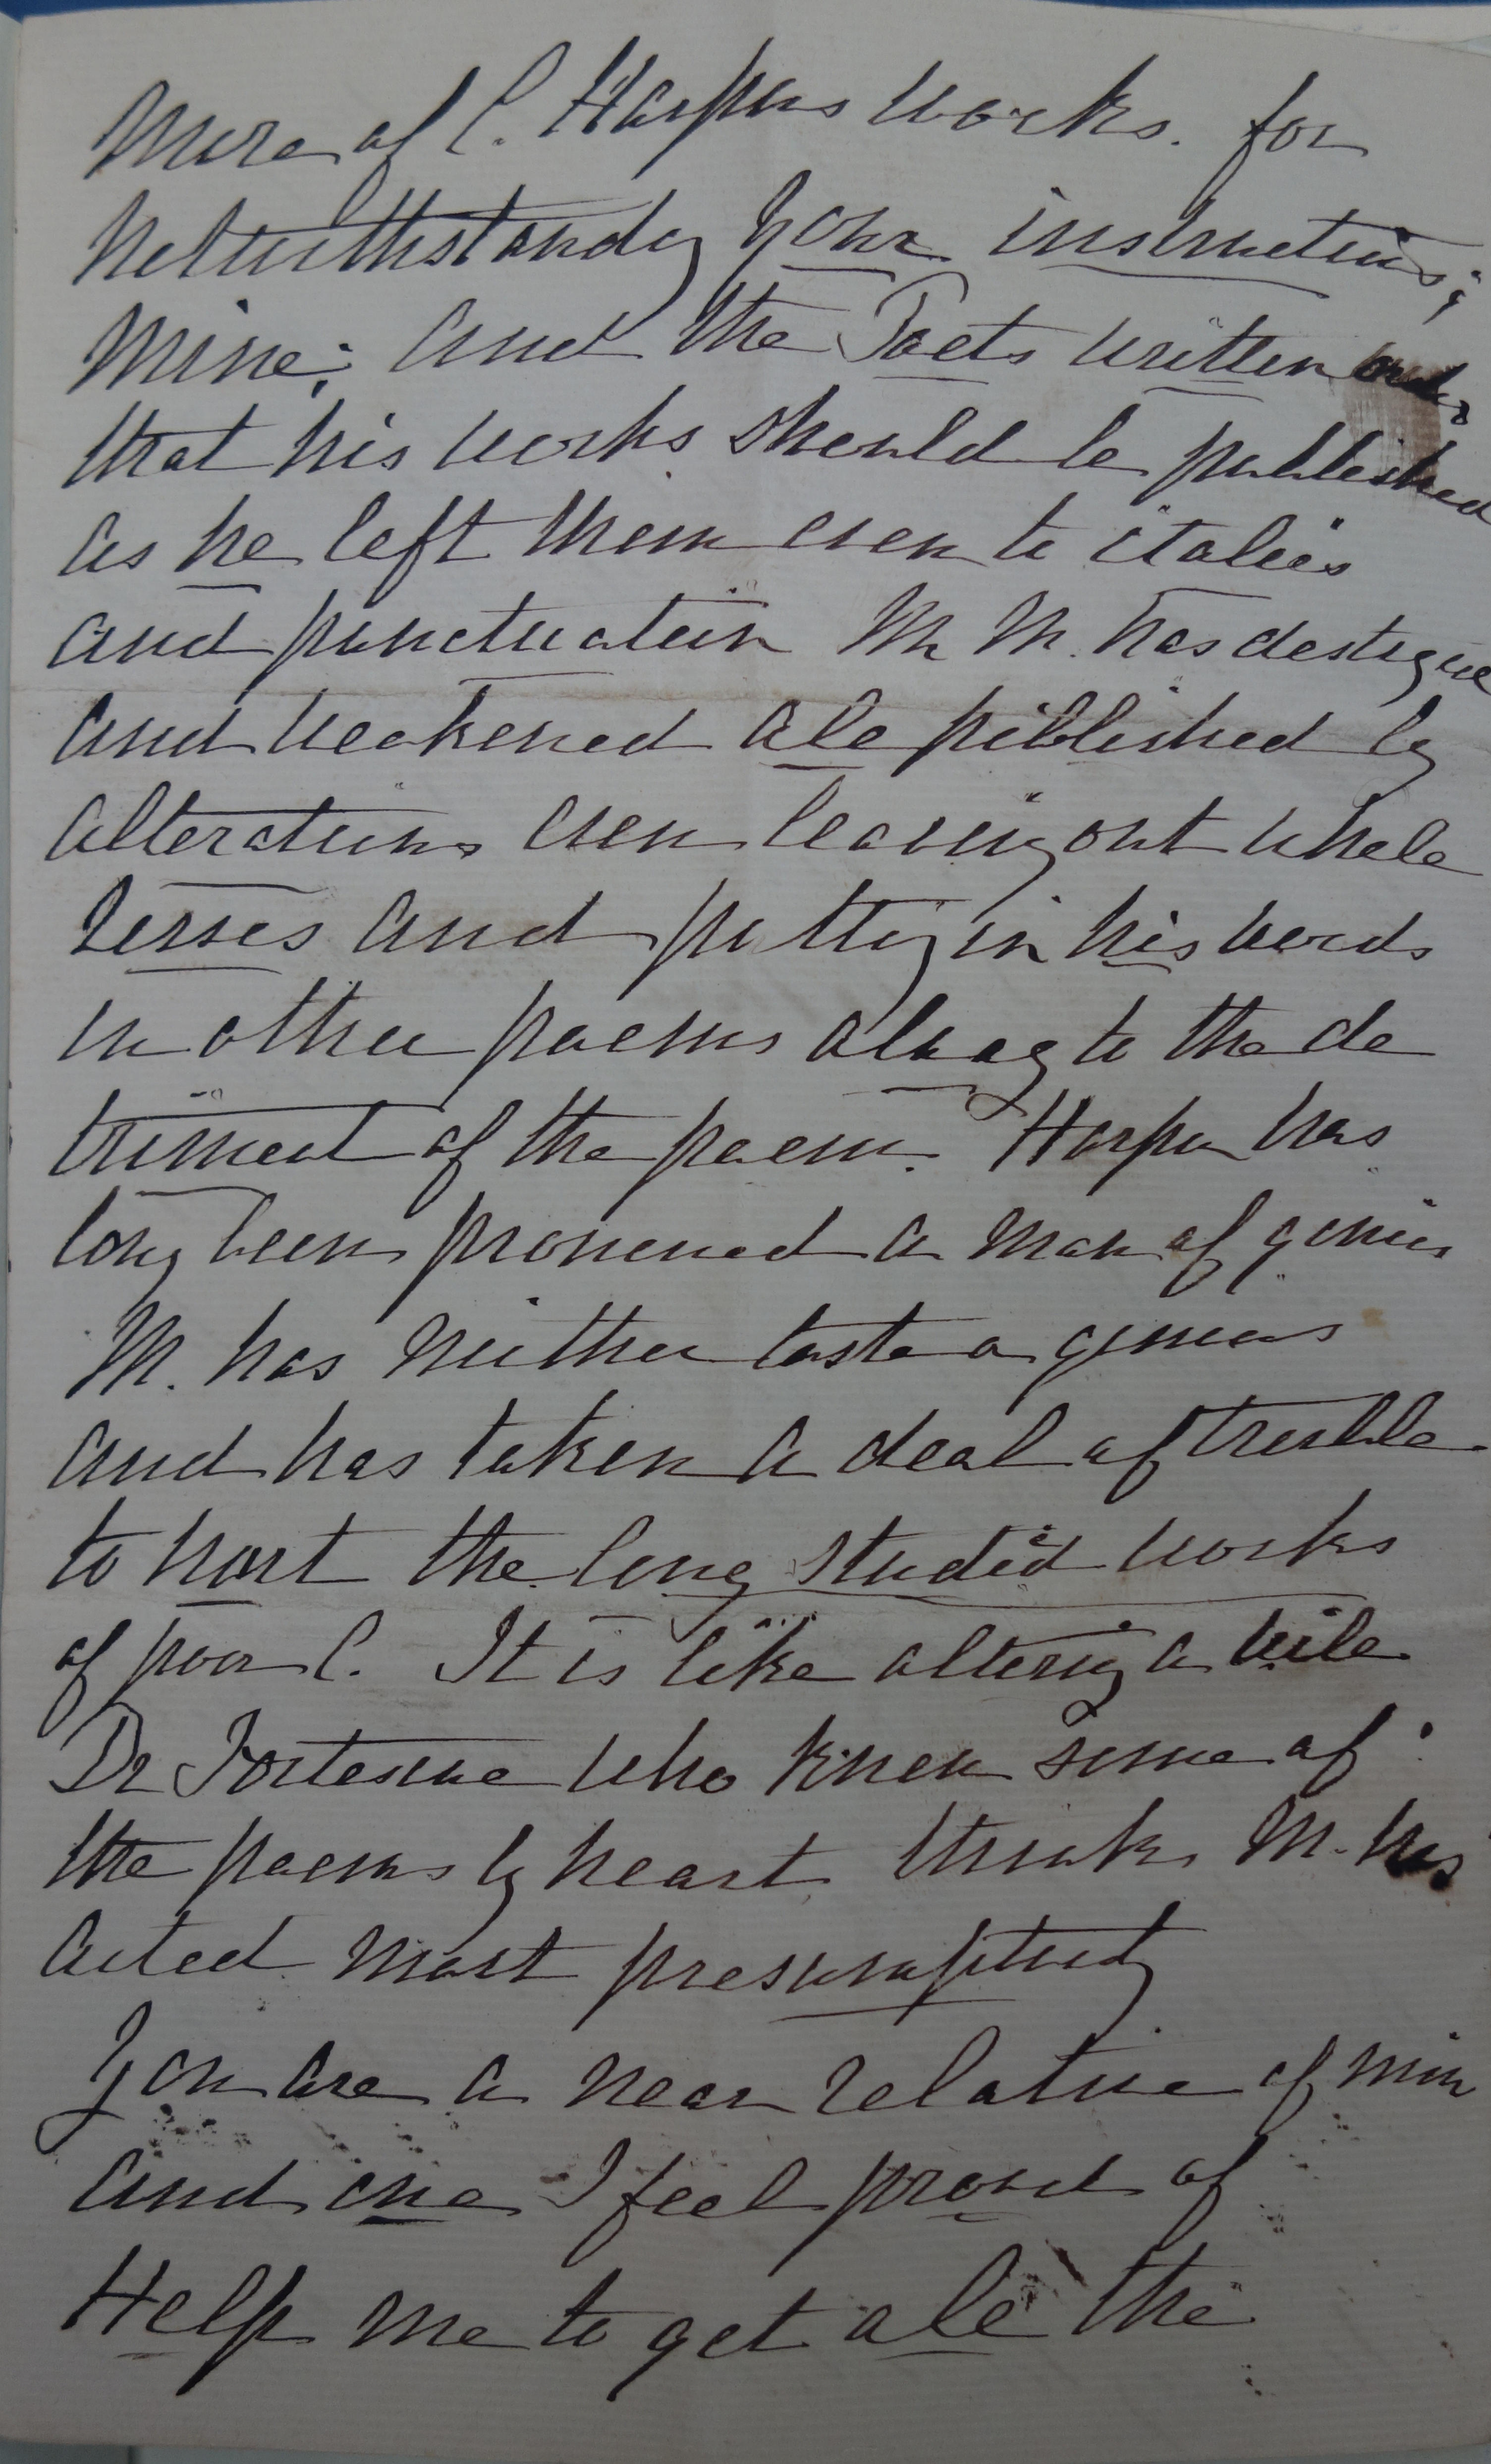 More of C. Harpurs works. for
Notwithstanding your instructions;
Mine; and the Poets written order
that his works should be published
as he left them even to italics
and punctuation Mr M. has destroyed
and weakened all published by
alterations even leaving out whole
verses and putting in his words
in other poems always to the de
triment of the poem. Harpur has
long been pronounced a man of genius
M. has neither taste or genius
and has taken a deal of trouble
to hurt the long studied works
of poor C. It is like altering a will
Dr Fortescue who knew some of
the poems by heart thinks M. has
acted most presumptuously
You are a near relative of mine
and one I feel proud of
Help me to get all the